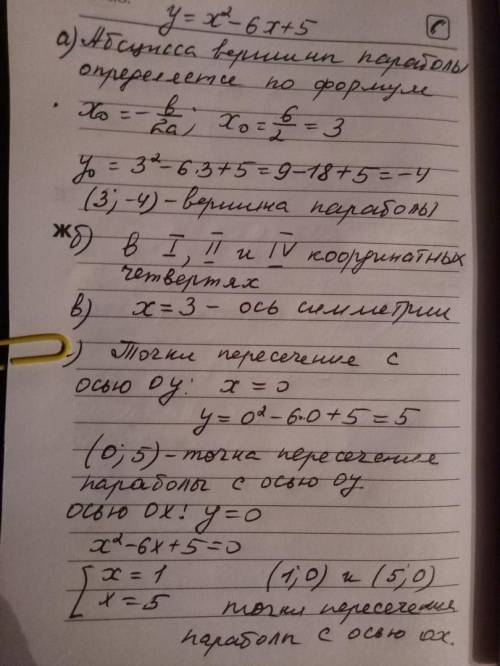 y = x² - 6x + 5
а) Абсцисса вершины параболы
определяется по формул
x₀ = -в/2a; x₀ = 6/2 = 3
y₀ = 3² - 6·3 + 5 = 9 - 18 + 5 = -4
(3; -4) - вершина параболы
ж б) в I, II и IV координатных
четвертях
в) x = 3 - ось симметрии
) Точки пересечение с
осью Oy: x = 0
y = 0² - 6·0 + 5 = 5
(0; 5) - точка пересечения
параболы с осью Oy.
осью Ox! y = 0
x² - 6x + 5 = 0
[ x = 1 (1; 0) и (5; 0)
x = 5 точки пересечения
параболы с осью Ox.